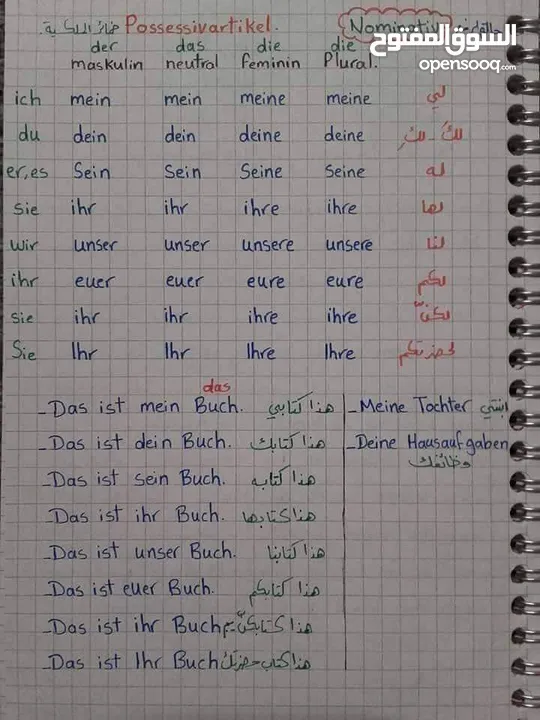 السوق المفتوح
opensooq.com
Possessivartikel. Nominativ
der das die die
maskulin neutral feminin Plural.
ich mein mein meine meine لي
du dein dein deine deine لكَ - لكِ
er,es Sein Sein Seine Seine له
sie ihr ihr ihre ihre لها
wir unser unser unsere unsere لنا
ihr euer euer eure eure لكم
sie ihr ihr ihre ihre
Sie Ihr Ihr Ihre Ihre لحضرتكم
das
_Das ist mein Buch. هذا كتابي _Meine Tochter ابنتي
_Das ist dein Buch. هذا كتابك _Deine Hausaufgaben
وظائفك
_Das ist sein Buch. هذا كتابه
_Das ist ihr Buch. هذا كتابها
_Das ist unser Buch. هذا كتابنا
_Das ist euer Buch. هذا كتابكم
_Das ist ihr Buch هذا
_Das ist Ihr Buch هذا كتاب حضرتك